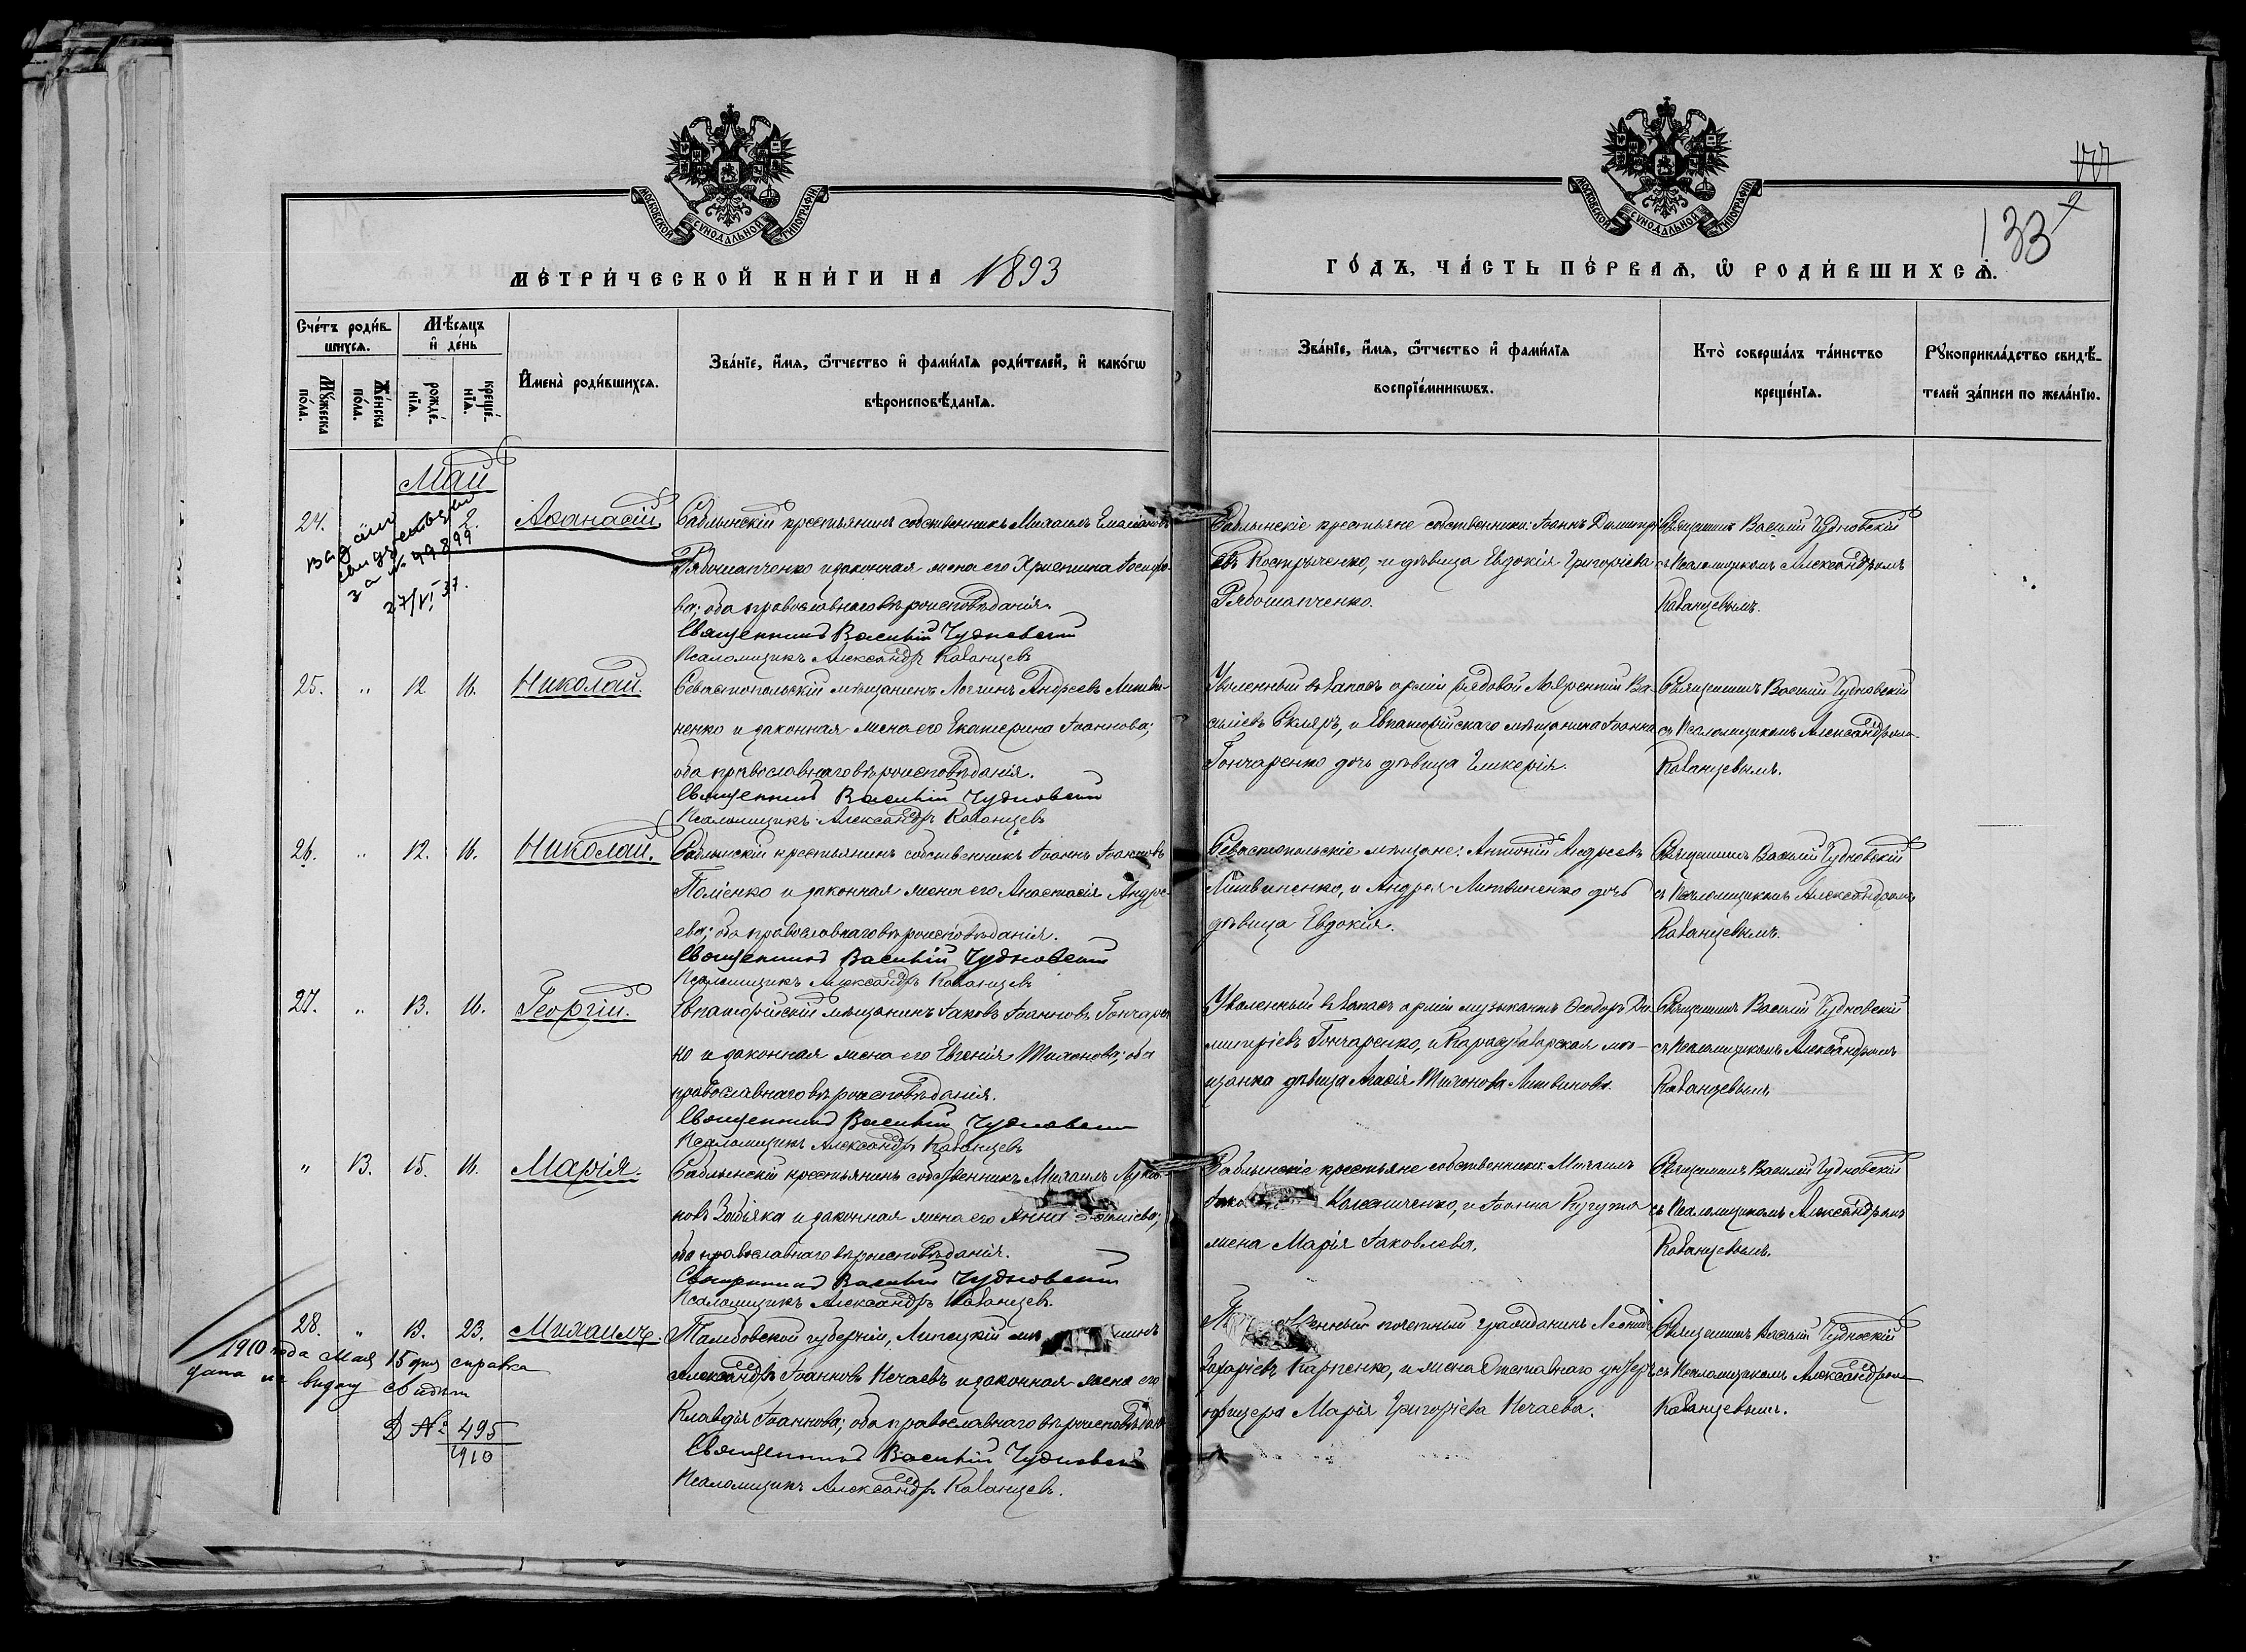 МОСКОВСКОЙ СѴНОДАЛЬНОЙ ТИПОГРАФІИ
МЕТРИЧЕСКОЙ КНИГИ НА 1893
Счетъ родив-
шихся.
Мѣсяцъ
и день
Мужеска
пола.
Женска
пола.
рожде-
нія.
креще-
нія.
Имена родившихся.
Званіе, имя, отчество и фамилія родителей, и какогѡ
вѣроисповѣданія.
Май
24.
2.
Аѳанасій
Саблынскій крестьянинъ собственникъ Михаилъ
Рябошапченко и законная жена его Христина Іосифо-
ва; оба православнаго вѣроисповѣданія.
Священникъ Василій Чудновскій
Псаломщикъ Александръ Кованцевъ
Видано
свидетельство
за № 49899
27/VI 37.
25. " 12 16. Николай.
Севастопольскій мѣщанинъ Логинъ Андреевъ Литви-
ненко и законная жена его Екатерина Іоаннова;
оба православнаго вѣроисповѣданія.
Священникъ Василій Чудновскій
Псаломщикъ Александръ Кованцевъ
26. " 12. 16. Николай.
Саблынскій крестьянинъ собственникъ Іоаннъ Іоанновъ
Поліенко и законная жена его Анастасія Андре-
ева; оба православнаго вѣроисповѣданія.
Священникъ Василій Чудновскій
Псаломщикъ Александръ Кованцевъ
27. " 13. 16. Георгій.
Евпаторійскій мѣщанинъ Іаковъ Іоанновъ Гончарен
ко и законная жена его Евгенія Тихонова; оба
православнаго вѣроисповѣданія.
Священникъ Василій Чудновскій
Псаломщикъ Александръ Кованцевъ
" 13. 15. 16. Марія.
Саблынскій крестьянинъ собственникъ Михаилъ
новъ Забіяка и законная жена его Анна
оба православнаго вѣроисповѣданія.
Священникъ Василій Чудновскій
Псаломщикъ Александръ Кованцевъ.
28. " 13. 23. Михаилъ.
Тамбовской губерніи, Липецкій
Александръ Іоанновъ Нечаевъ и законная жена его
Клавдія Іоаннова; оба православнаго вѣроисповѣдан
Священникъ Василій Чудновскій
Псаломщикъ Александръ Кованцевъ.
1910 года Мая 15 дня справка
дана на выдачу свидѣт
№ 495
910
МОСКОВСКОЙ СѴНОДАЛЬНОЙ ТИПОГРАФІИ
177
133
ГОДЪ, ЧАСТЬ ПЕРВАЯ, Ѡ РОДИВШИХСЯ.
Званіе, имя, отчество и фамилія
воспріемниковъ.
Кто совершалъ таинство
крещенія.
Рукоприкладство свидѣ-
телей записи по желанію.
Саблынскіе крестьяне собственники: Іоаннъ Димитрі
евъ Кострыченко, и дѣвица Евдокія Григоріева
Рябошапченко.
Священникъ Василій Чудновскій
съ Псаломщикомъ Александромъ
Кованцевымъ.
Уволенный въ запасъ арміи рядовой Лаврентій Ва-
сильевъ Скляръ, и Евпаторійскаго мѣщанина Іоанна
Гончаренко дочь дѣвица Гликерія.
Священникъ Василій Чудновскій
съ Псаломщикомъ Александромъ
Кованцевымъ.
Севастопольскіе мѣщане: Антоній Андреевъ
Литвиненко, и Андрея Литвиненко дочь
дѣвица Евдокія.
Священникъ Василій Чудновскій
съ Псаломщикомъ Александромъ
Кованцевымъ.
Уволенный въ запасъ арміи музыкантъ Ѳеодоръ Ди
митріевъ Гончаренко, и Карасубазарская мѣ-
щанка дѣвица Агаѳія Тихонова Литвинова.
Священникъ Василій Чудновскій
съ Псаломщикомъ Александромъ
Кованцевымъ.
Саблынскіе крестьяне собственники: Михаилъ
Колесниченко, и Іоанна Кугута
жена Марія Іаковлева.
Священникъ Василій Чудновскій
съ Псаломщикомъ Александромъ
Кованцевымъ.
почетный гражданинъ Леонидъ
Захаріевъ Карпенко, и жена отставного унтеръ
офицера Марія Григоріева Нечаева.
Священникъ Василій Чудноскій
съ Псаломщикомъ Александромъ
Кованцевымъ.